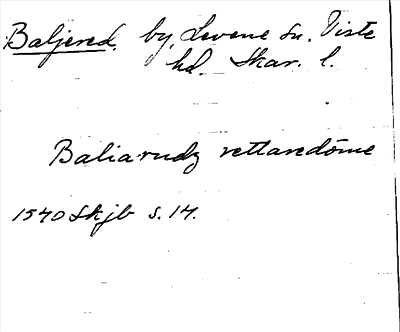 Baljered, by, Levene sn. Viste
hd. Skar. l.
Baliarudz rettaredöme
1540 Skjb s. 14.